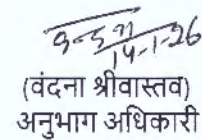 14-1-26
(वंदना श्रीवास्तव)
अनुभाग अधिकारी